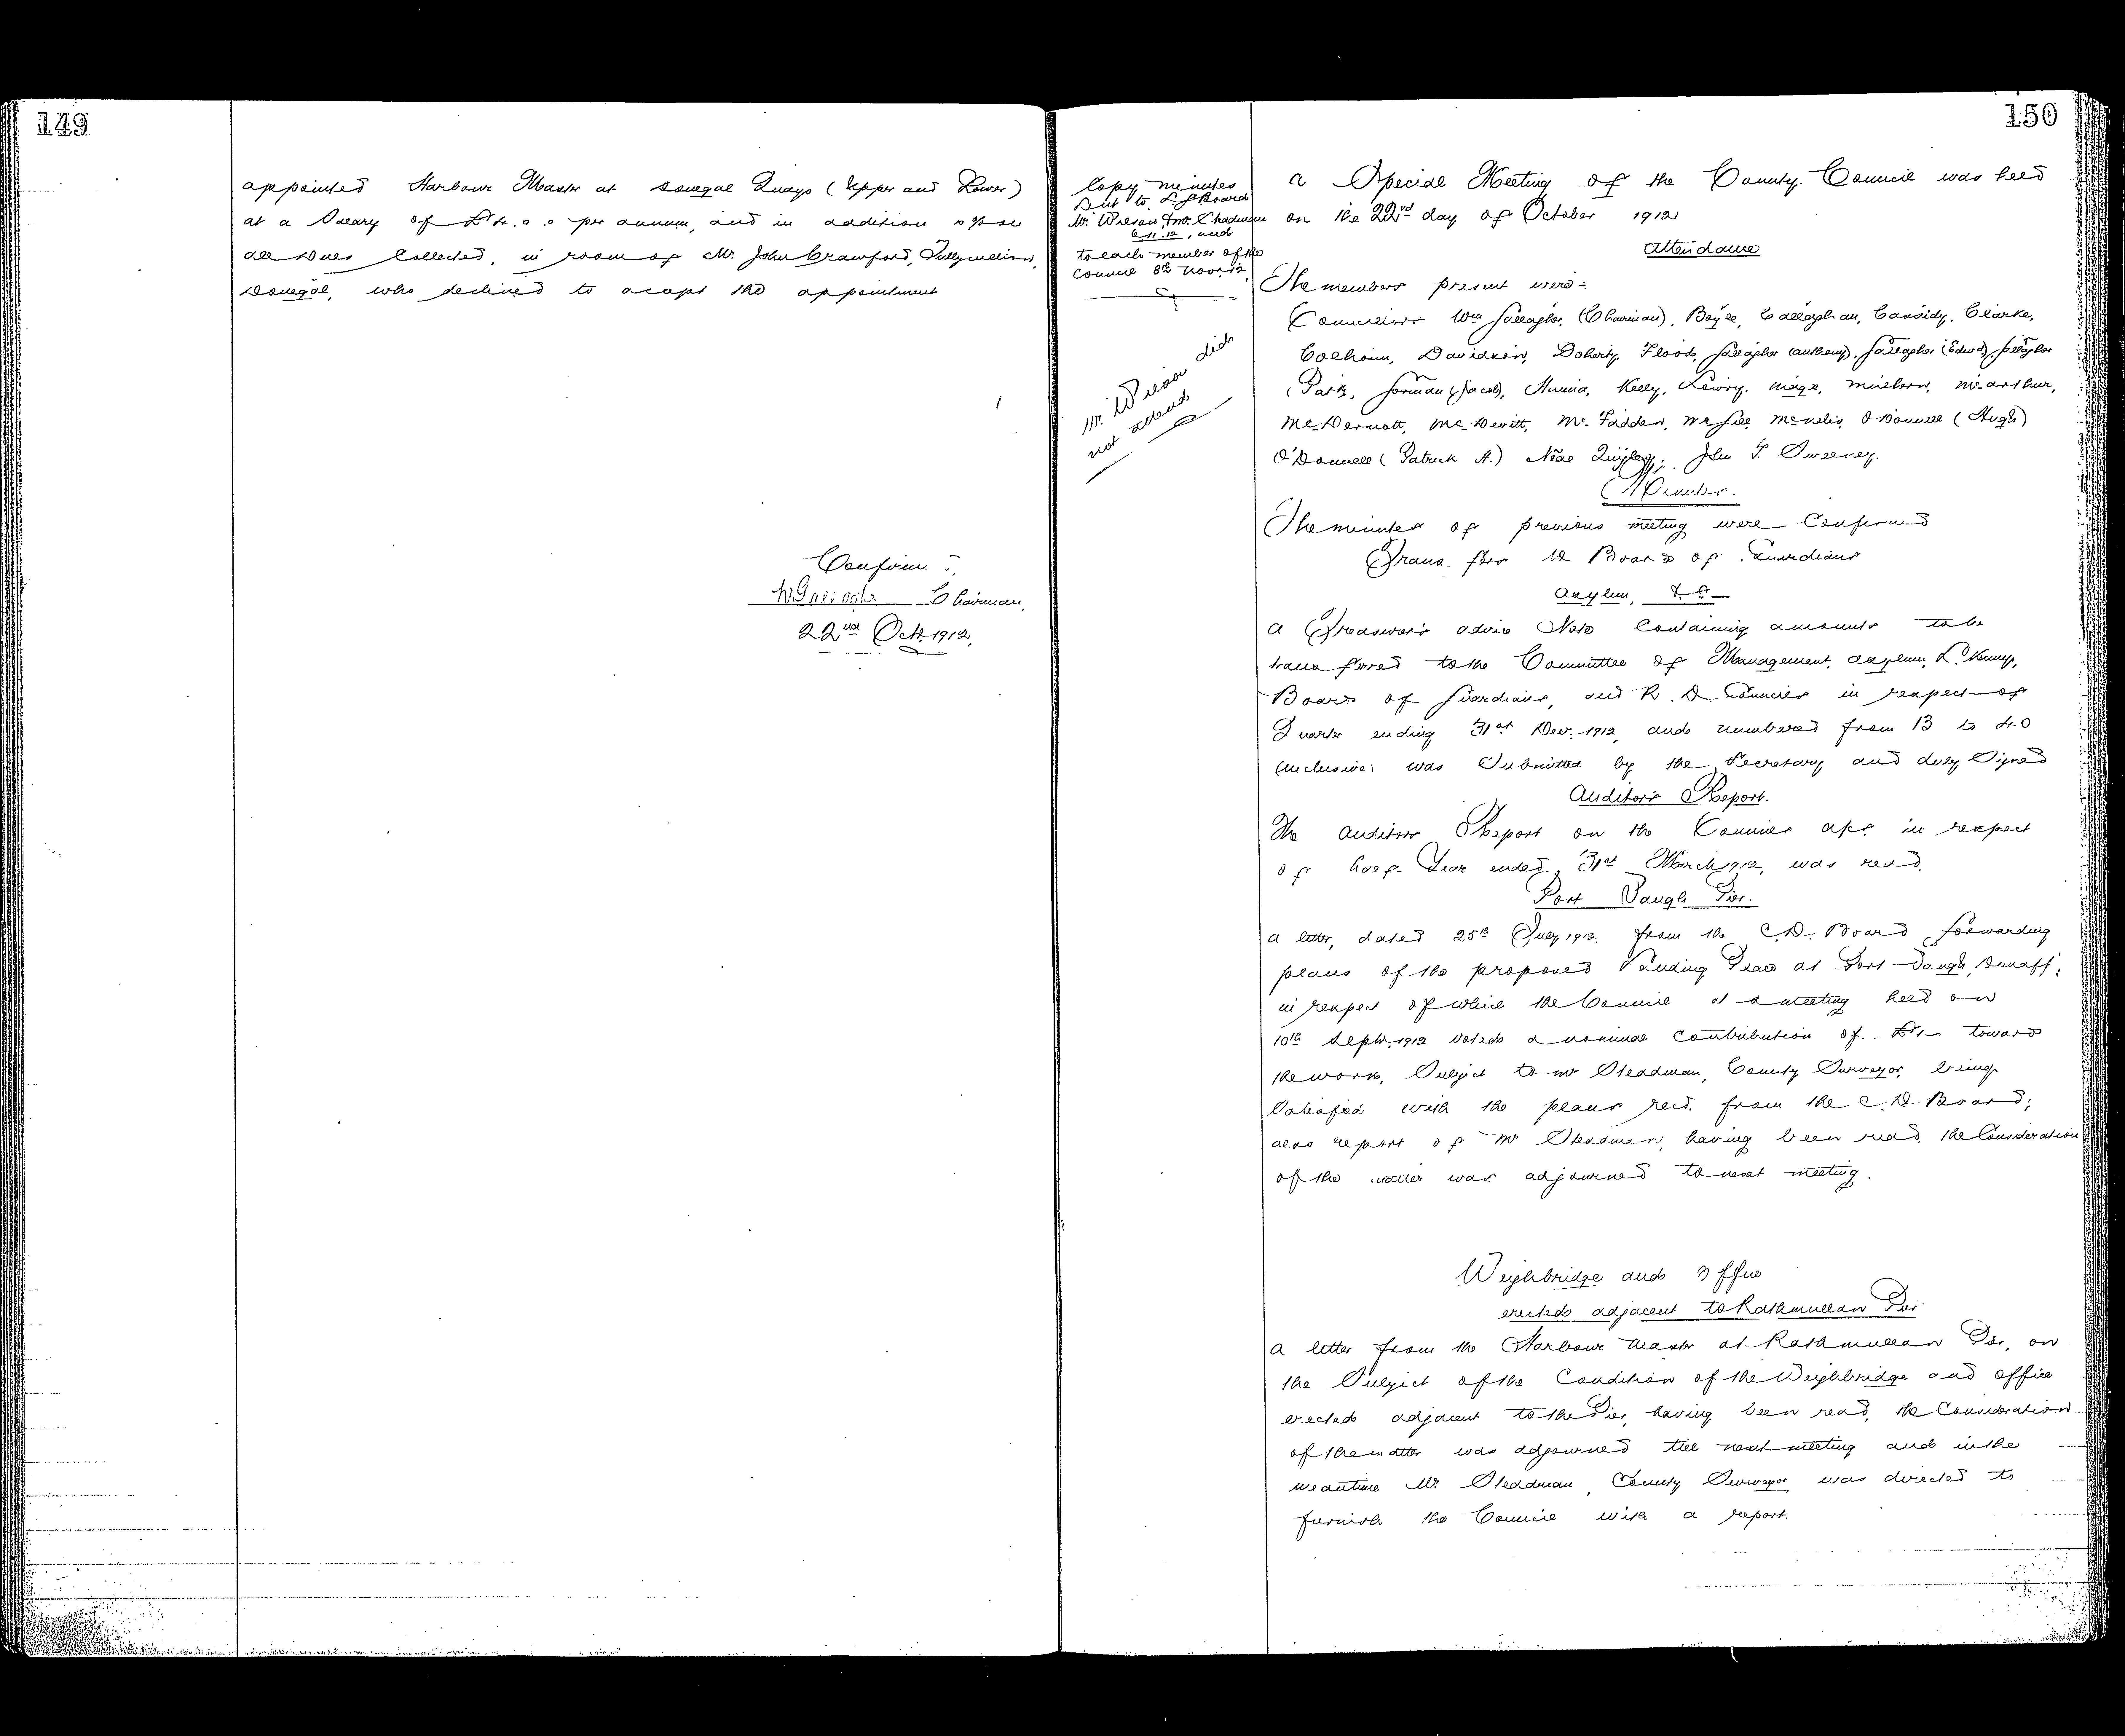 149
appointed Harbour Master at Donegal Quays (Upper and Lower)
at a Salary of £4.0.0 per annum, and in addition 10% on
all dues Collected, in room of Mr. John Crawford, Tullycullion,
Donegal, who declined to accept the appointment
Confirmed
Chairman,
22nd Oct. 1912,
150
Copy minutes
Sent to L.G Board
Mr. Wilson & Mr. Steadman
6.11.12, and
to each member of the
Council 8th Novr. 12
Mr. Wilson did
not attend
A Special Meeting of the County Council was held
on the 22nd day of October 1912
Attendance
The members present were:-
Councillors Wm Gallagher, (Chairman), Boyle, Callaghan, Cassidy, Clarke,
Colhoun, Davidson, Doherty, Flood, Gallagher (Anthony), Gallagher (Edwd), Gallagher
(Patk, Gorman (Jacob), Kelly, Lowry, McArthur,
McDermott, McDevitt, McFadden, McGill, McNelis, O'Donnell (Hugh)
O'Donnell (Patrick A.) Neal Quigley; John T Sweeney.
Minutes.
The minutes of previous meeting were Confirmed
Transfers to Boards of Guardians
Asylum, &c
A Treasurer's advice Note Containing amounts to be
transferred to the Committee of Management, Asylum, L'Kenny,
Boards of Guardians, and R. D. Councils in respect of
Quarter ending 31st Decr. 1912, and numbered from 13 to 40
(inclusive) was Submitted by the Secretary and duly Signed
Auditor's Report.
The Auditors Report on the Councils a/cs in respect
of half-Year ended 31st March 1912, was read.
Port Vaugh Pier.
A letter, dated 25th July 1912 from the C.D. Board forwarding
plans of the proposed Landing Place at Port Vaugh, Dunaff;
in respect of which the Council at a meeting held on
10th Septr. 1912 voted a nominal Contribution of £1- towards
the work, Subject to Mr Steadman, County Surveyor, being
Satisfied with the plans recd. from the C.D. Board;
also report of Mr Steadman, having been read, the Consideration
of the matter was adjourned to next meeting.
Weighbridge and Office
erected adjacent to Rathmullan Pier
A letter from the Harbour Master at Rathmullan Pier, on
the Subject of the Condition of the Weighbridge and Office
erected adjacent to the Pier, having been read, the Consideration
of the matter was adjourned till next meeting and in the
meantime Mr. Steadman, County Surveyor, was directed to
furnish the Council with a report.